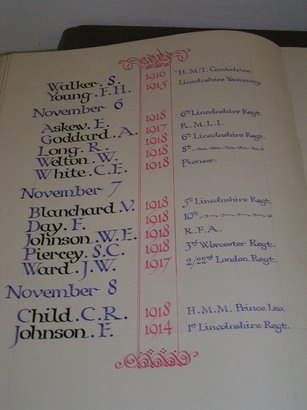 Walker. S. 1919 H.M.T. Cantatrice.
Young. F.H. 1915 Lincolnshire Yeomanry
November 6
Askew. E. 1918 6th Lincolnshire Regt.
Goddard. A. 1917 R.M.L.I.
Long. R. 1918 6th Lincolnshire Regt.
Welton. W. 1918 8th
White. C.E. 1918 Pioneer
November 7
Blanchard. V. 1918 5th Lincolnshire Regt.
Day. F. 1918 10th
Johnson. W.E. 1918 R.F.A.
Piercy. S.C. 1918 3rd Worcester Regt.
Ward. J.W. 1917 2/22nd London Regt.
November 8
Child. C.R. 1918 H.M.M. Prince Leo.
Johnson. F. 1914 1st Lincolnshire Regt.